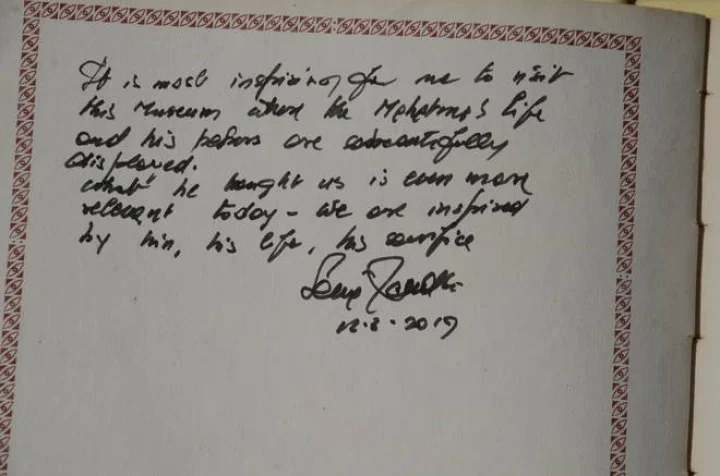 It is most inspiring for me to visit
this Museum where the Mahatma's life
and his labors are so beautifully
displayed.
What he taught us is even more
relevant today - We are inspired
by him, his life, his sacrifice
Sonia Gandhi
2019